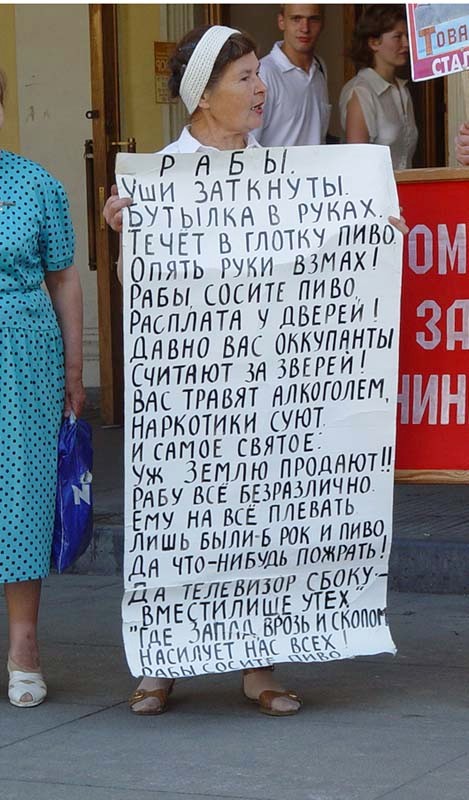 Това
СТАЛ
РАБЫ.
УШИ ЗАТКНУТЫ.
БУТЫЛКА В РУКАХ.
ТЕЧЁТ В ГЛОТКУ ПИВО.
ОПЯТЬ РУКИ ВЗМАХ!
РАБЫ, СОСИТЕ ПИВО,
РАСПЛАТА У ДВЕРЕЙ!
ДАВНО ВАС ОККУПАНТЫ
СЧИТАЮТ ЗА ЗВЕРЕЙ!
ВАС ТРАВЯТ АЛКОГОЛЕМ,
НАРКОТИКИ СУЮТ.
И САМОЕ СВЯТОЕ:
УЖ ЗЕМЛЮ ПРОДАЮТ!!
РАБУ ВСЁ БЕЗРАЗЛИЧНО.
ЕМУ НА ВСЁ ПЛЕВАТЬ.
ЛИШЬ БЫЛИ-Б РОК И ПИВО,
ДА ЧТО-НИБУДЬ ПОЖРАТЬ!
ДА ТЕЛЕВИЗОР СБОКУ-
"ВМЕСТИЛИЩЕ УТЕХ,"
"ГДЕ ЗАПАД, ВРОЗЬ И СКОПОМ,
НАСИЛУЕТ НАС ВСЕХ!
РАБЫ СОСИТЕ ПИВО.
ОМ
ЗА
НИН
N